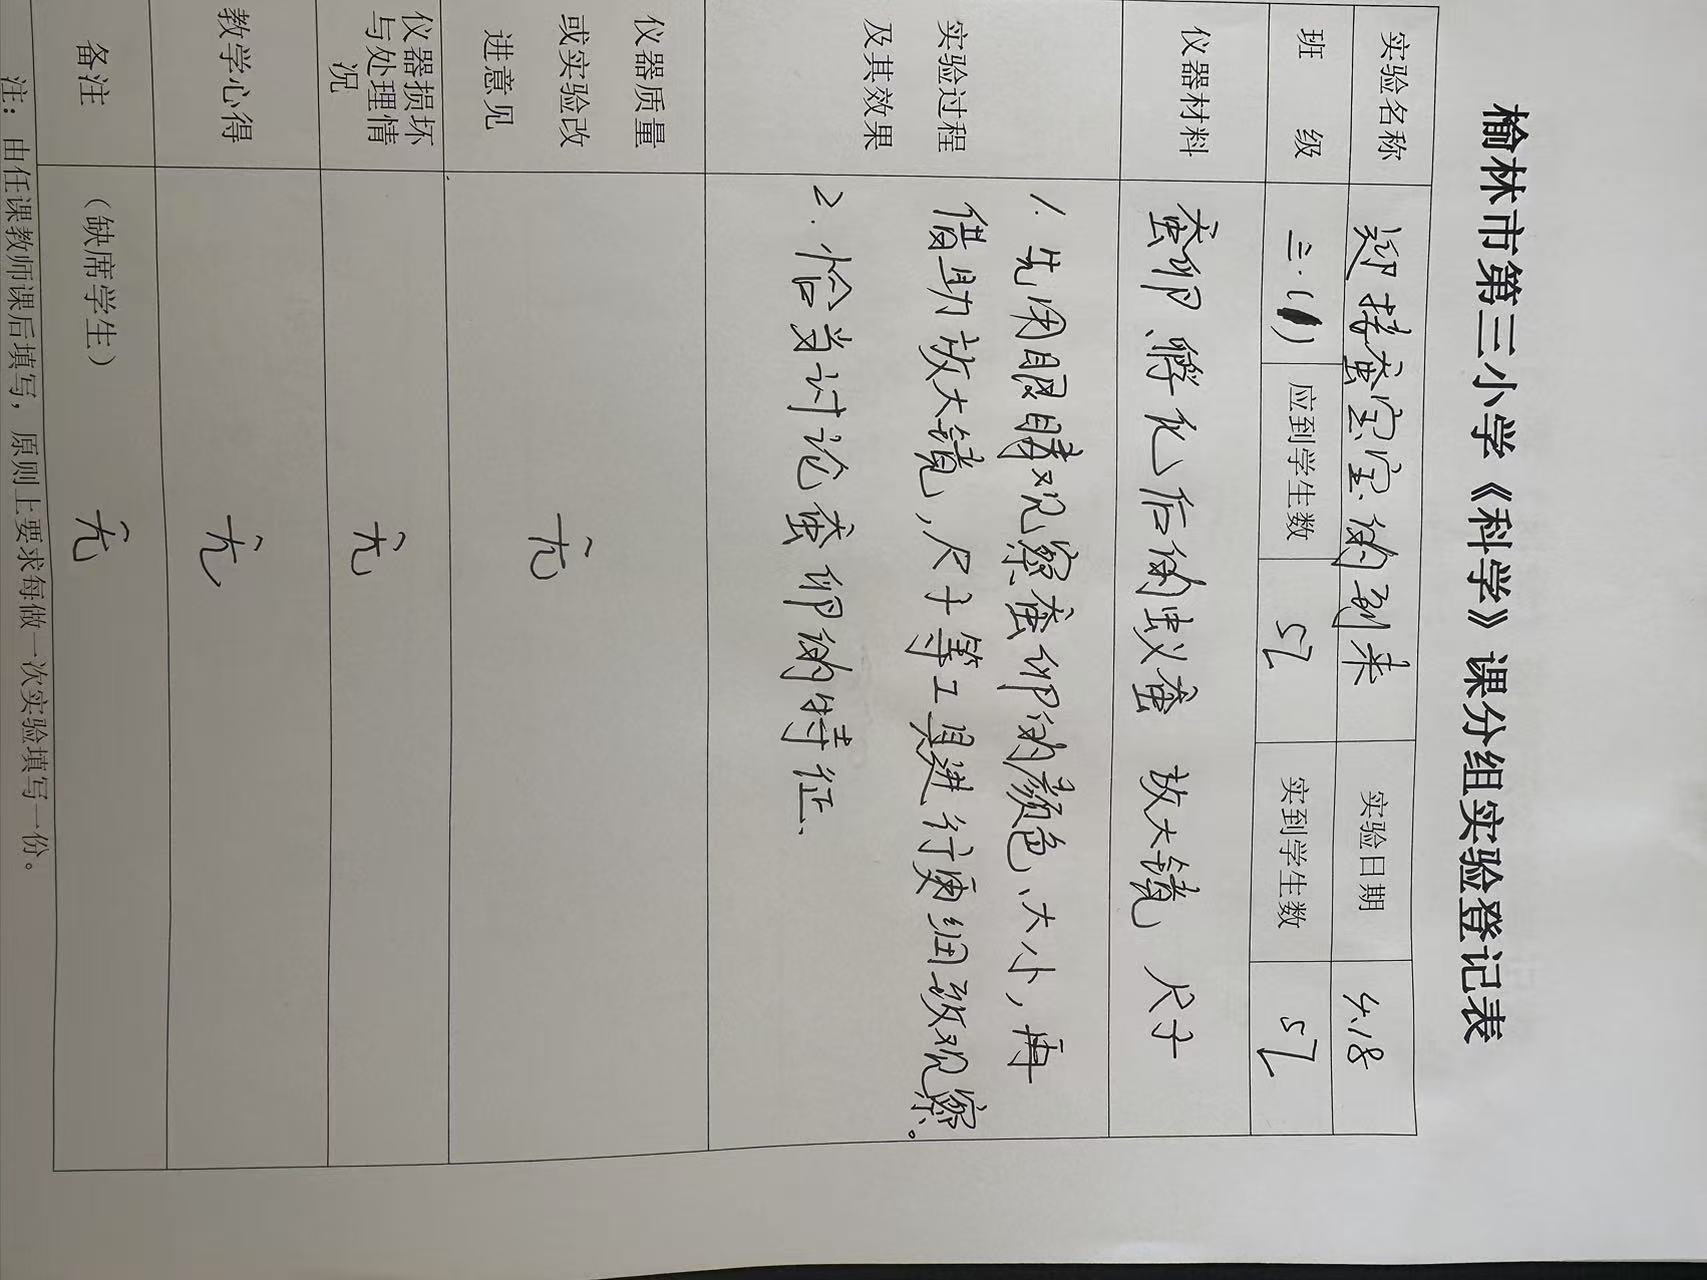 榆林市第三小学《科学》课分组实验登记表
实验名称 迎接蚕宝宝的到来 实验日期 4.18
班 级 三.(1) 应到学生数 57 实到学生数 57
仪器材料 蚕卵、孵化后的蚁蚕 放大镜 尺子
实验过程
及其效果
1. 先用眼睛观察蚕卵的颜色、大小,再
借助放大镜,尺子等工具进行更细致观察。
2. 恰当讨论蚕卵的特征、
仪器质量
或实验改
进意见
无
仪器损坏
与处理情
况
无
教学心得 无
备注 (缺席学生) 无
注:由任课教师课后填写,原则上要求每做一次实验填写一份。